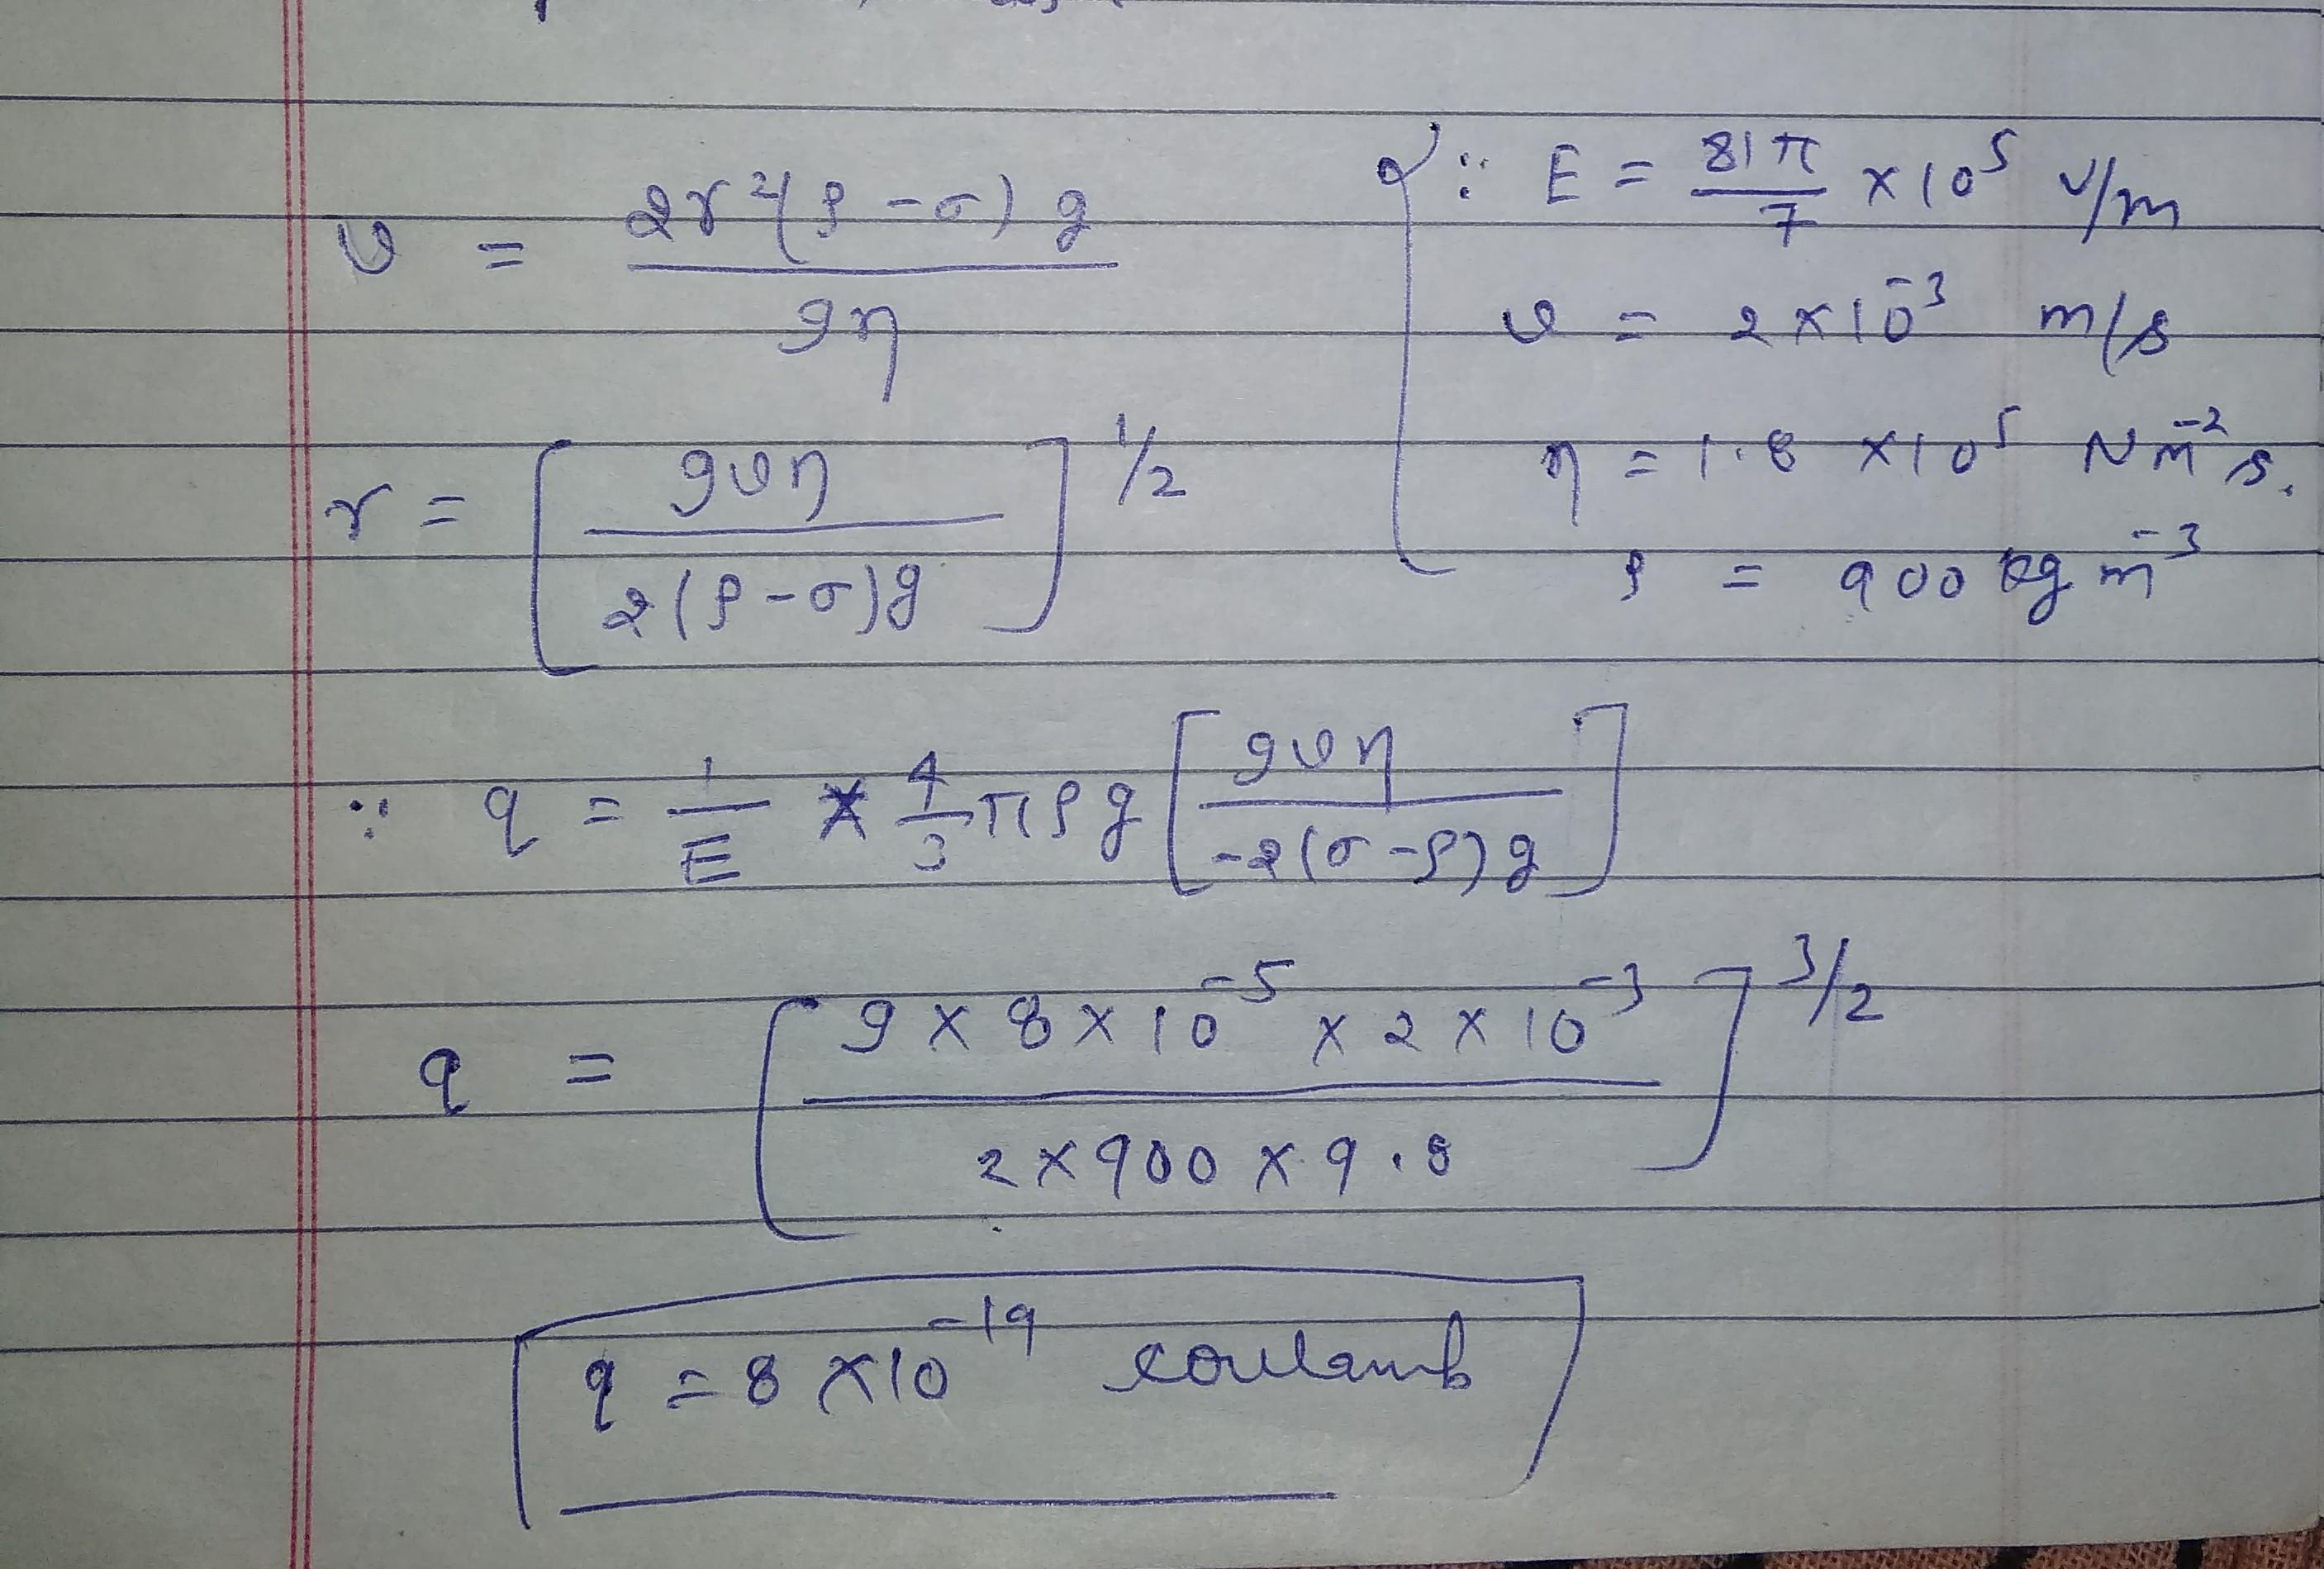 v = 2r²(ρ-σ)g / 9η
{∵ E = 81π/7 × 10⁵ V/m
v = 2×10⁻³ m/s
η = 1.8 ×10⁵ Nm⁻²s.
ρ = 900 kg m⁻³
r = [9vη / 2(ρ-σ)g]^1/2
∵ q = 1/E × 4/3 πρg [9vη / -2(σ-ρ)g]
q = [9×8×10⁻⁵ × 2×10⁻³ / 2×900×9.8]^3/2
q = 8×10⁻¹⁹ coulamb